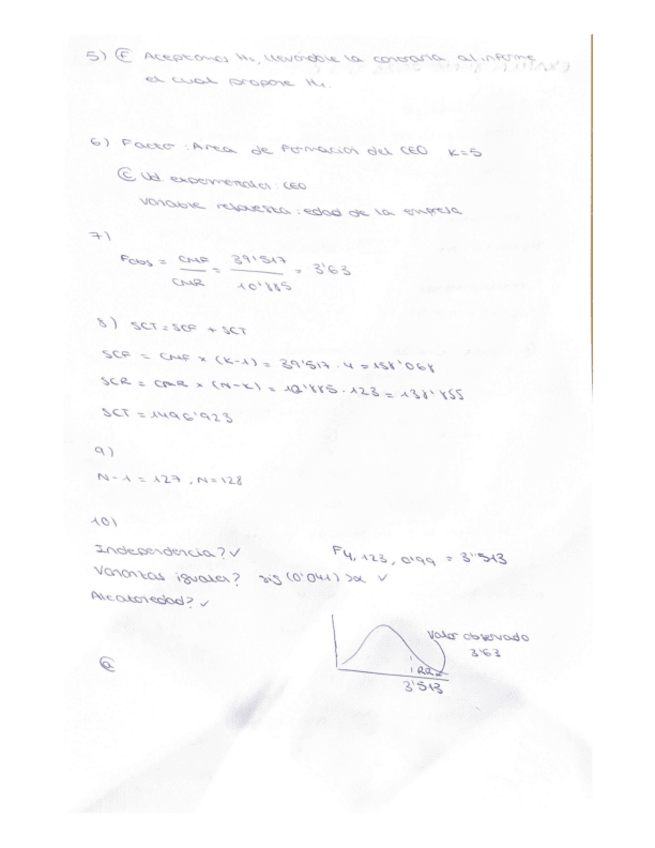 5) Ⓔ Aceptamos H₀, llevándole la contraria al informe
el cual propone H₁.
6) Factor : Area de formación del CEO K=5
Ⓒ Ud experimental : CEO
variable respuesta : edad de la empresa
7)
Fobs = CMF / CMR = 39'517 / 10'885 = 3'63
8) SCT = SCF + SCT
SCF = CMF x (K-1) = 39'517 · 4 = 158'068
SCR = CMR x (N-K) = 10'885 · 123 = 1338'855
SCT = 1496'923
9)
N-1 = 127 , N=128
10)
Independencia? ✓ F4, 123, 0'99 = 3'513
Varianzas iguales? sig (0'041) >α ✓
Aleatoriedad? ✓
Valor observado
3'63
RR
3'513
ⓐ